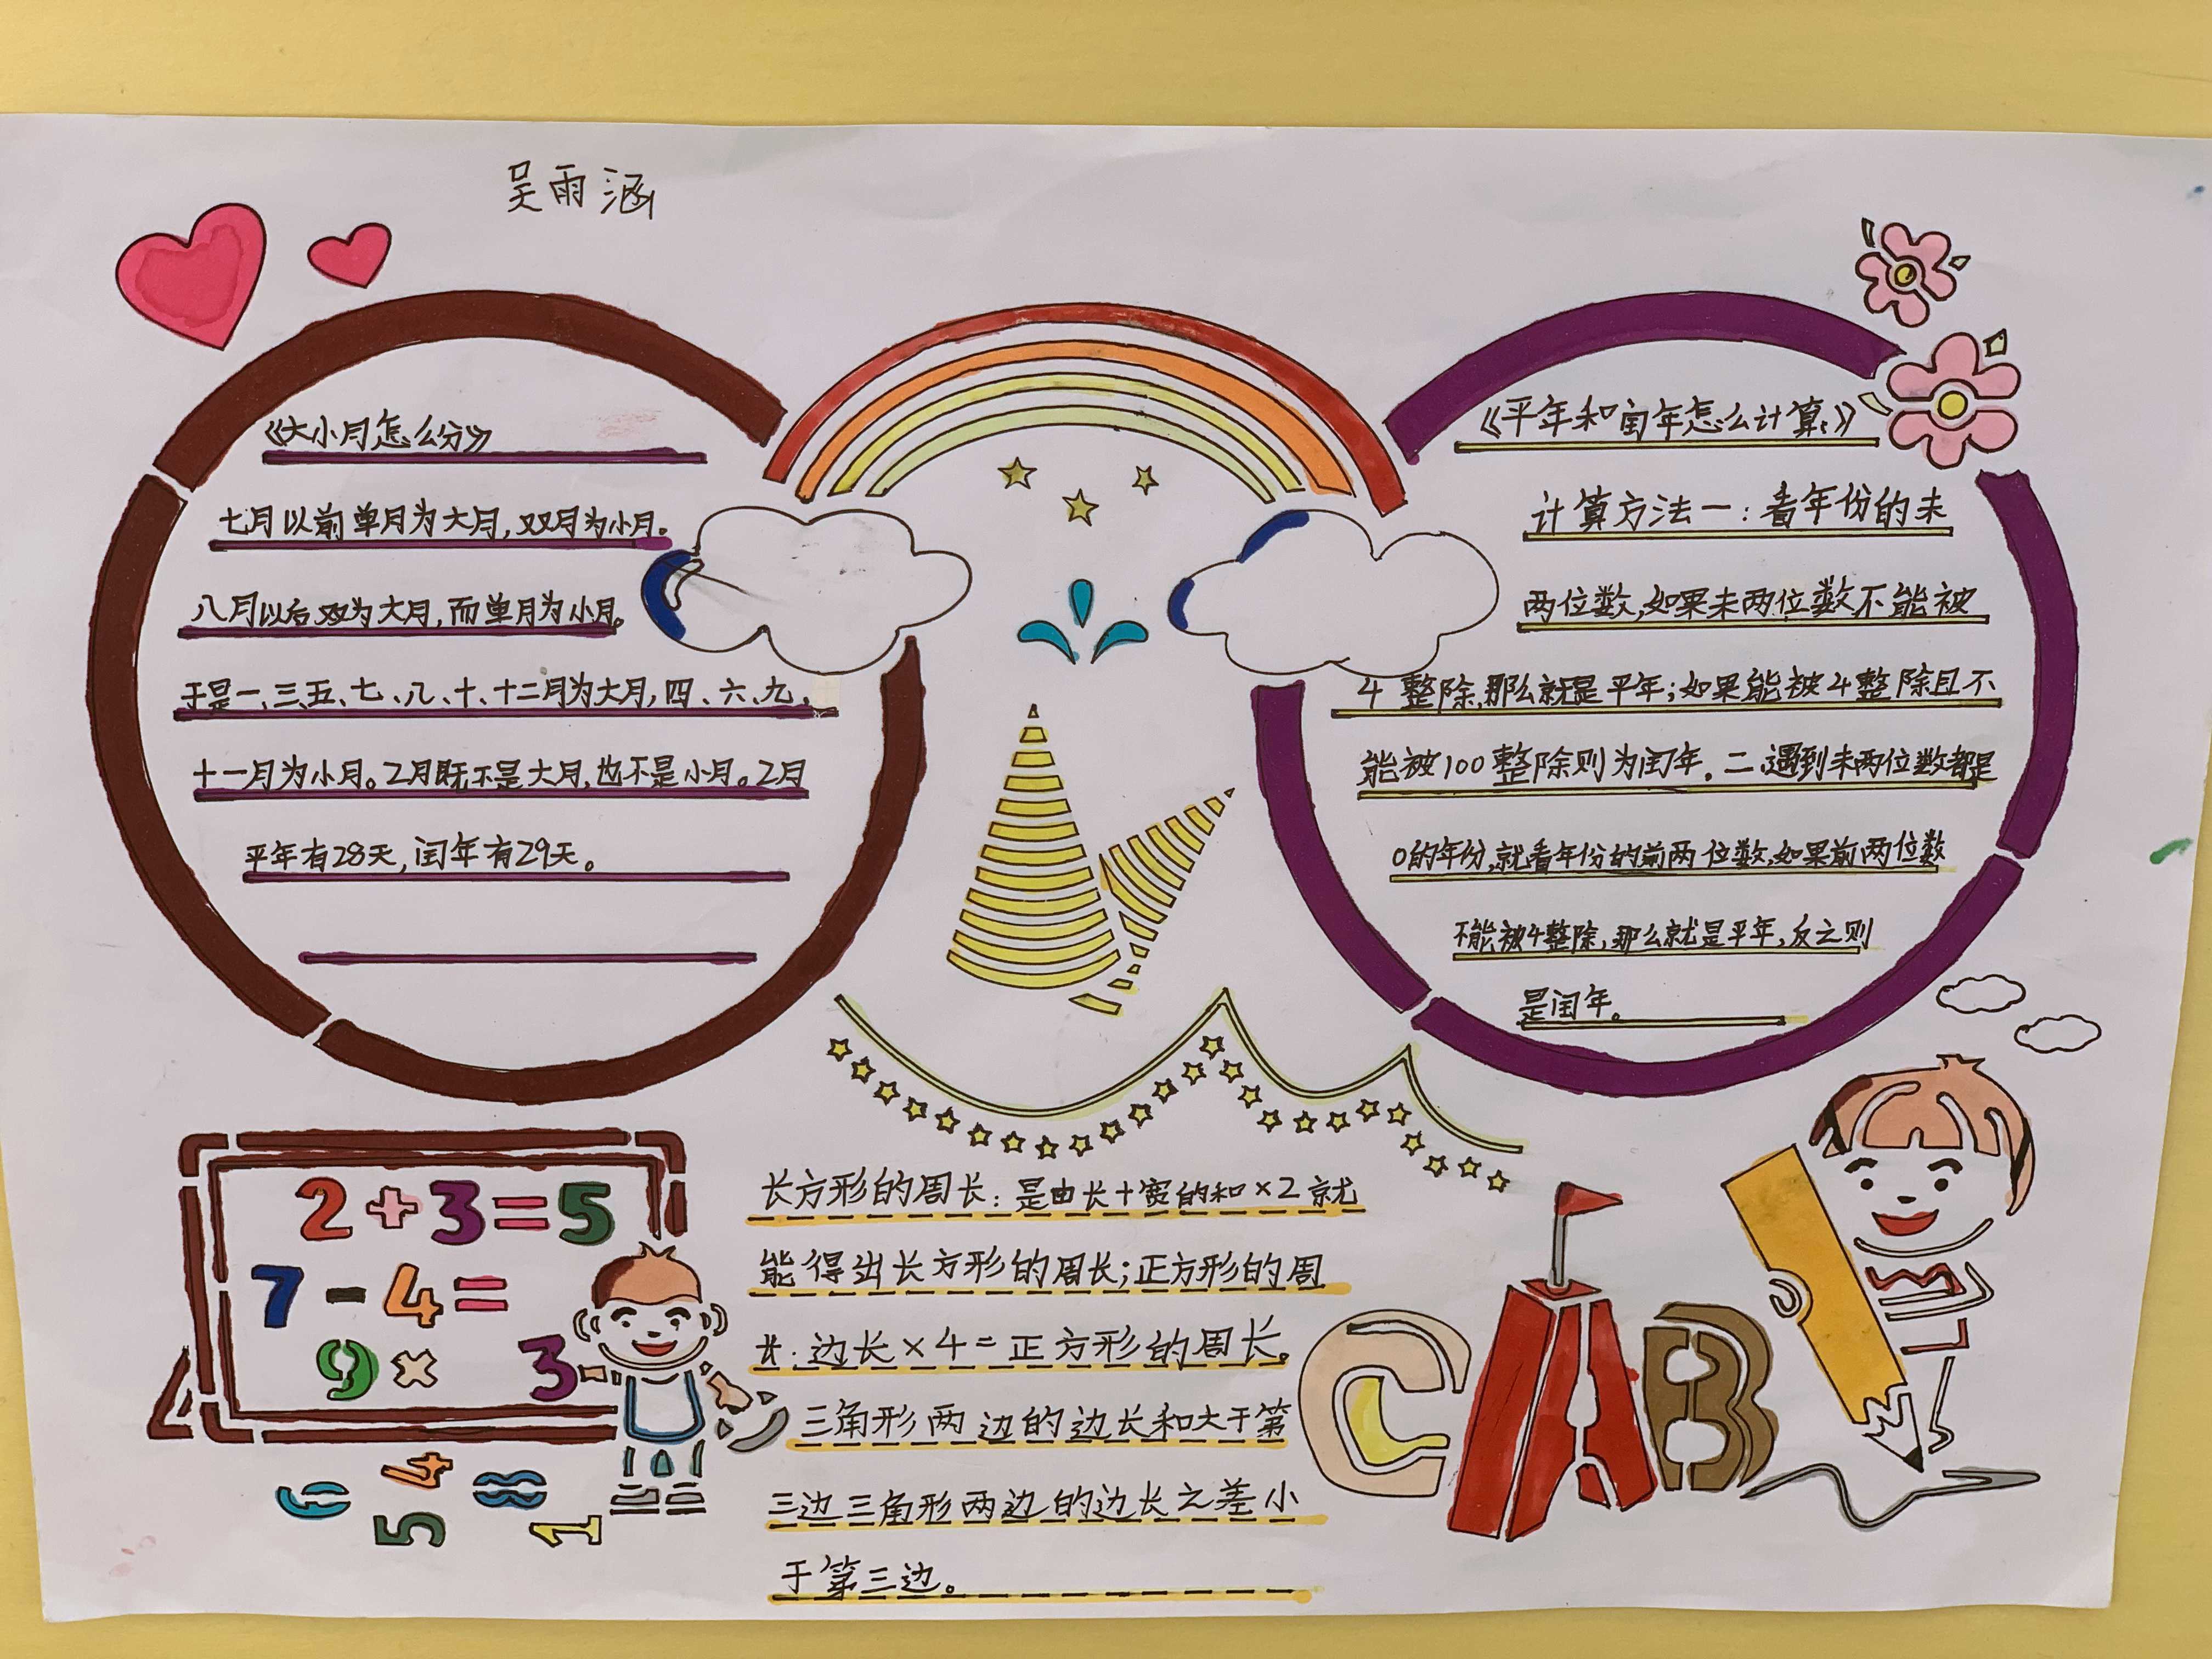 吴雨涵
《大小月怎么分》
七月以前单月为大月，双月为小月。
八月以后双为大月，而单月为小月。
于是一、三、五、七、八、十、十二月为大月，四、六、九、
十一月为小月。2月既不是大月，也不是小月。2月
平年有28天，闰年有29天。
《平年和闰年怎么计算》
计算方法一：看年份的末
两位数，如果末两位数不能被
4整除，那么就是平年；如果能被4整除且不
能被100整除则为闰年。二、遇到末两位数都是
0的年份，就看年份的前两位数，如果前两位数
不能被4整除，那么就是平年，反之则
是闰年。
2+3=5
7-4=
9× 3
6 4 8
5 1
长方形的周长：是由长+宽的和×2就
能得出长方形的周长；正方形的周
长：边长×4=正方形的周长。
三角形两边的边长和大于第
三边三角形两边的边长之差小
于第三边。
CAB